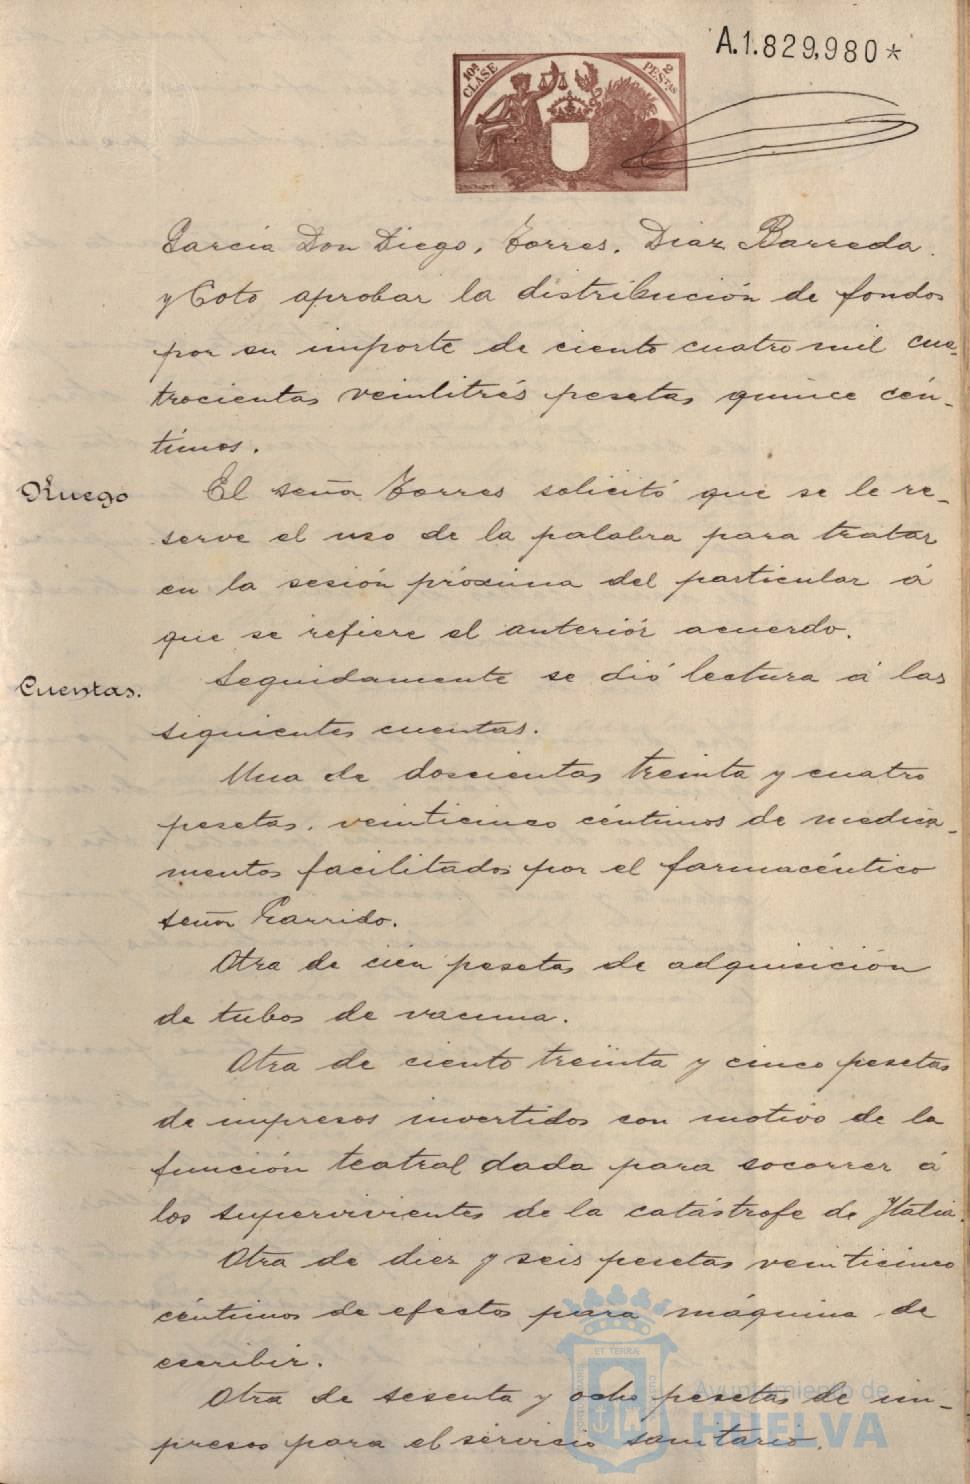 A.1.829,980*
10ª CLASE
2 PESETAS
García Don Diego, Torres, Diaz Barreda
y Coto aprobar la distribución de fondos
por su importe de ciento cuatro mil cua-
trocientas veintitrés pesetas quince cén-
timos.
Ruego
El señor Torres solicitó que se le re-
serve el uso de la palabra para tratar
en la sesión próxima del particular á
que se refiere el anteriór acuerdo.
Cuentas.
Seguidamente se dió lectura á las
siguientes cuentas.
Una de doscientas treinta y cuatro
pesetas, veinticinco céntimos de medica-
mentos facilitados por el farmacéutico
señor Garrido.
Otra de cién pesetas de adquisición
de tubos de vacuna.
Otra de ciento treinta y cinco pesetas
de impresos invertidos con motivo de la
función teatral dada para socorrer á
los supervivientes de la catástrofe de Italia.
Otra de diez y seis pesetas veinticinco
céntimos de efectos para máquina de
escribir.
Otra de sesenta y ocho pesetas de im-
presos para el servicio sanitario.
ET TERRÆ
Ayuntamiento de
HUELVA